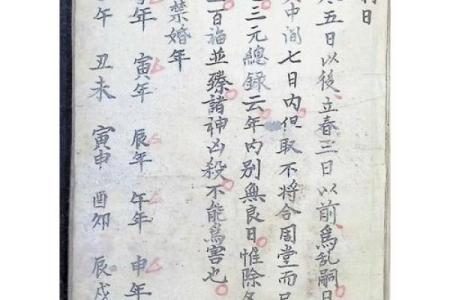 日
五日以後立春三日以前爲乱嗣日
中间七日内但取不将合周堂而
三元總錄云年内别無良日惟除
百福並臻諸神凶殺不能爲害也
禁婚年
年 寅年 辰年 午年 申年
午 丑未 寅申 酉卯 辰戌